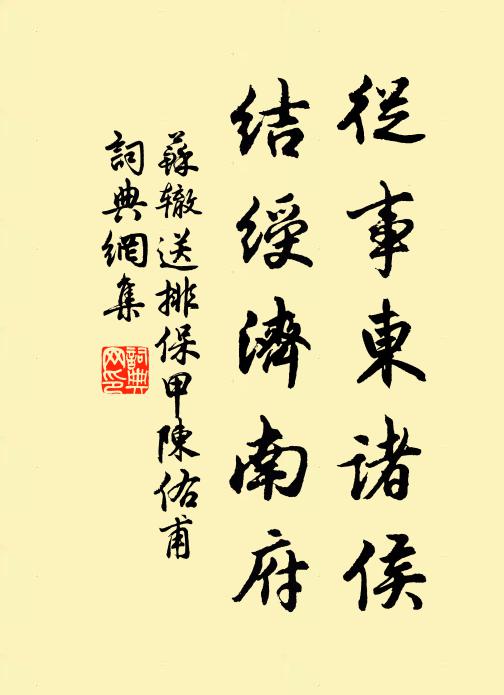 從事東諸侯
結綬濟南府
蘇辙送排保甲陳佑甫
詞典網集
詞典
网印